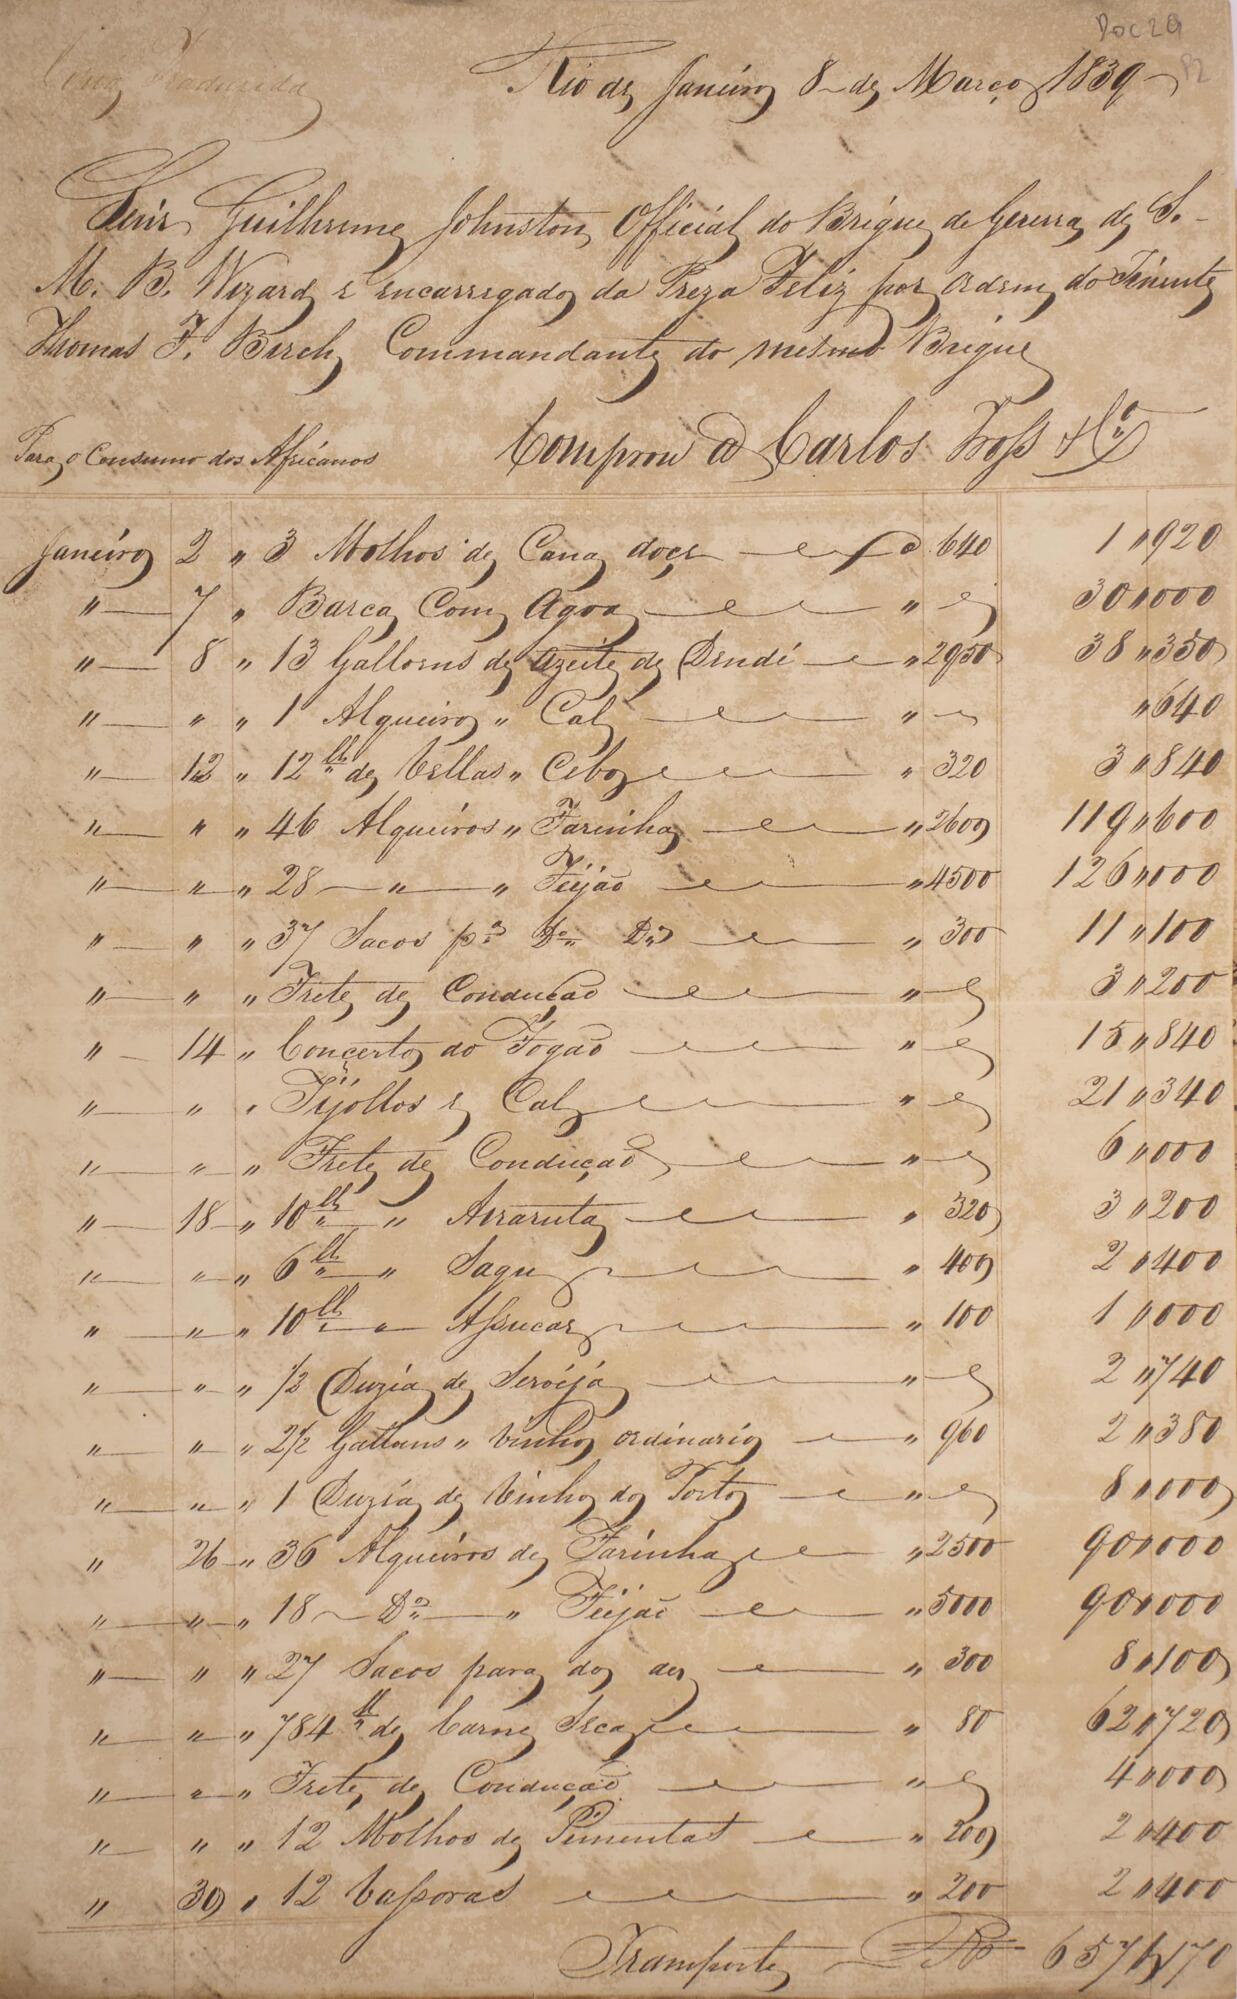 Doc 29
P2
Rio de Janeiro 8 de Março 1839
Luis Guilherme Johnston Official do Brigue de Guerra de S.
M. B. Wizard e encarregado da Preza Feliz por ordem do Tenente
Thomas F. Birch Commandante do mesmo Brigue
Para o Consumo dos Africanos Comprou a Carlos Tross & Cª
Janeiro 2 " 3 Molhos de Cana doçe @ 640 1"920
" 7 " Barca Com Agoa " 30"000
" 8 " 13 Gallons de Azeite de Dendé " 2950 38"350
" " " 1 Alqueiro " Cal " "640
" 12 " 12 lb de Vellas " Cebo " 320 3"840
" " " 46 Alqueiros " Farinha " 2600 119"600
" " " 28 " " Feijão " 4500 126"000
" " " 37 Sacos pª Do Do " 300 11"100
" " " Frete de Condução " 3"200
" 14 " Concerto do Fogão " 15"840
" " " Tijollos e Cal " 21"340
" " " Frete de Condução " 6"000
" 18 " 10 lb " Araruta " 320 3"200
" " " 6 lb " Sagu " 400 2"400
" " " 10 lb " Assucar " 100 1"000
" " " 1/2 Duzia de Serveja " 2"740
" " " 2 1/2 Gallons " Vinho ordinario " 960 2"380
" " " 1 Duzia de Vinho do Porto " 8"000
" 26 " 36 Alqueiros de Farinha " 2500 90"000
" " " 18 Do " Feijão " 5000 90"000
" " " 27 Sacos para do do " 300 8"100
" " " 784 lb de Carne Seca " 80 62"720
" " " Frete de Condução " 4"000
" " " 12 Molhos de Pimentas " 200 2"400
" 30 " 12 Vassoras " 200 2"400
Transporte Rs 657"170